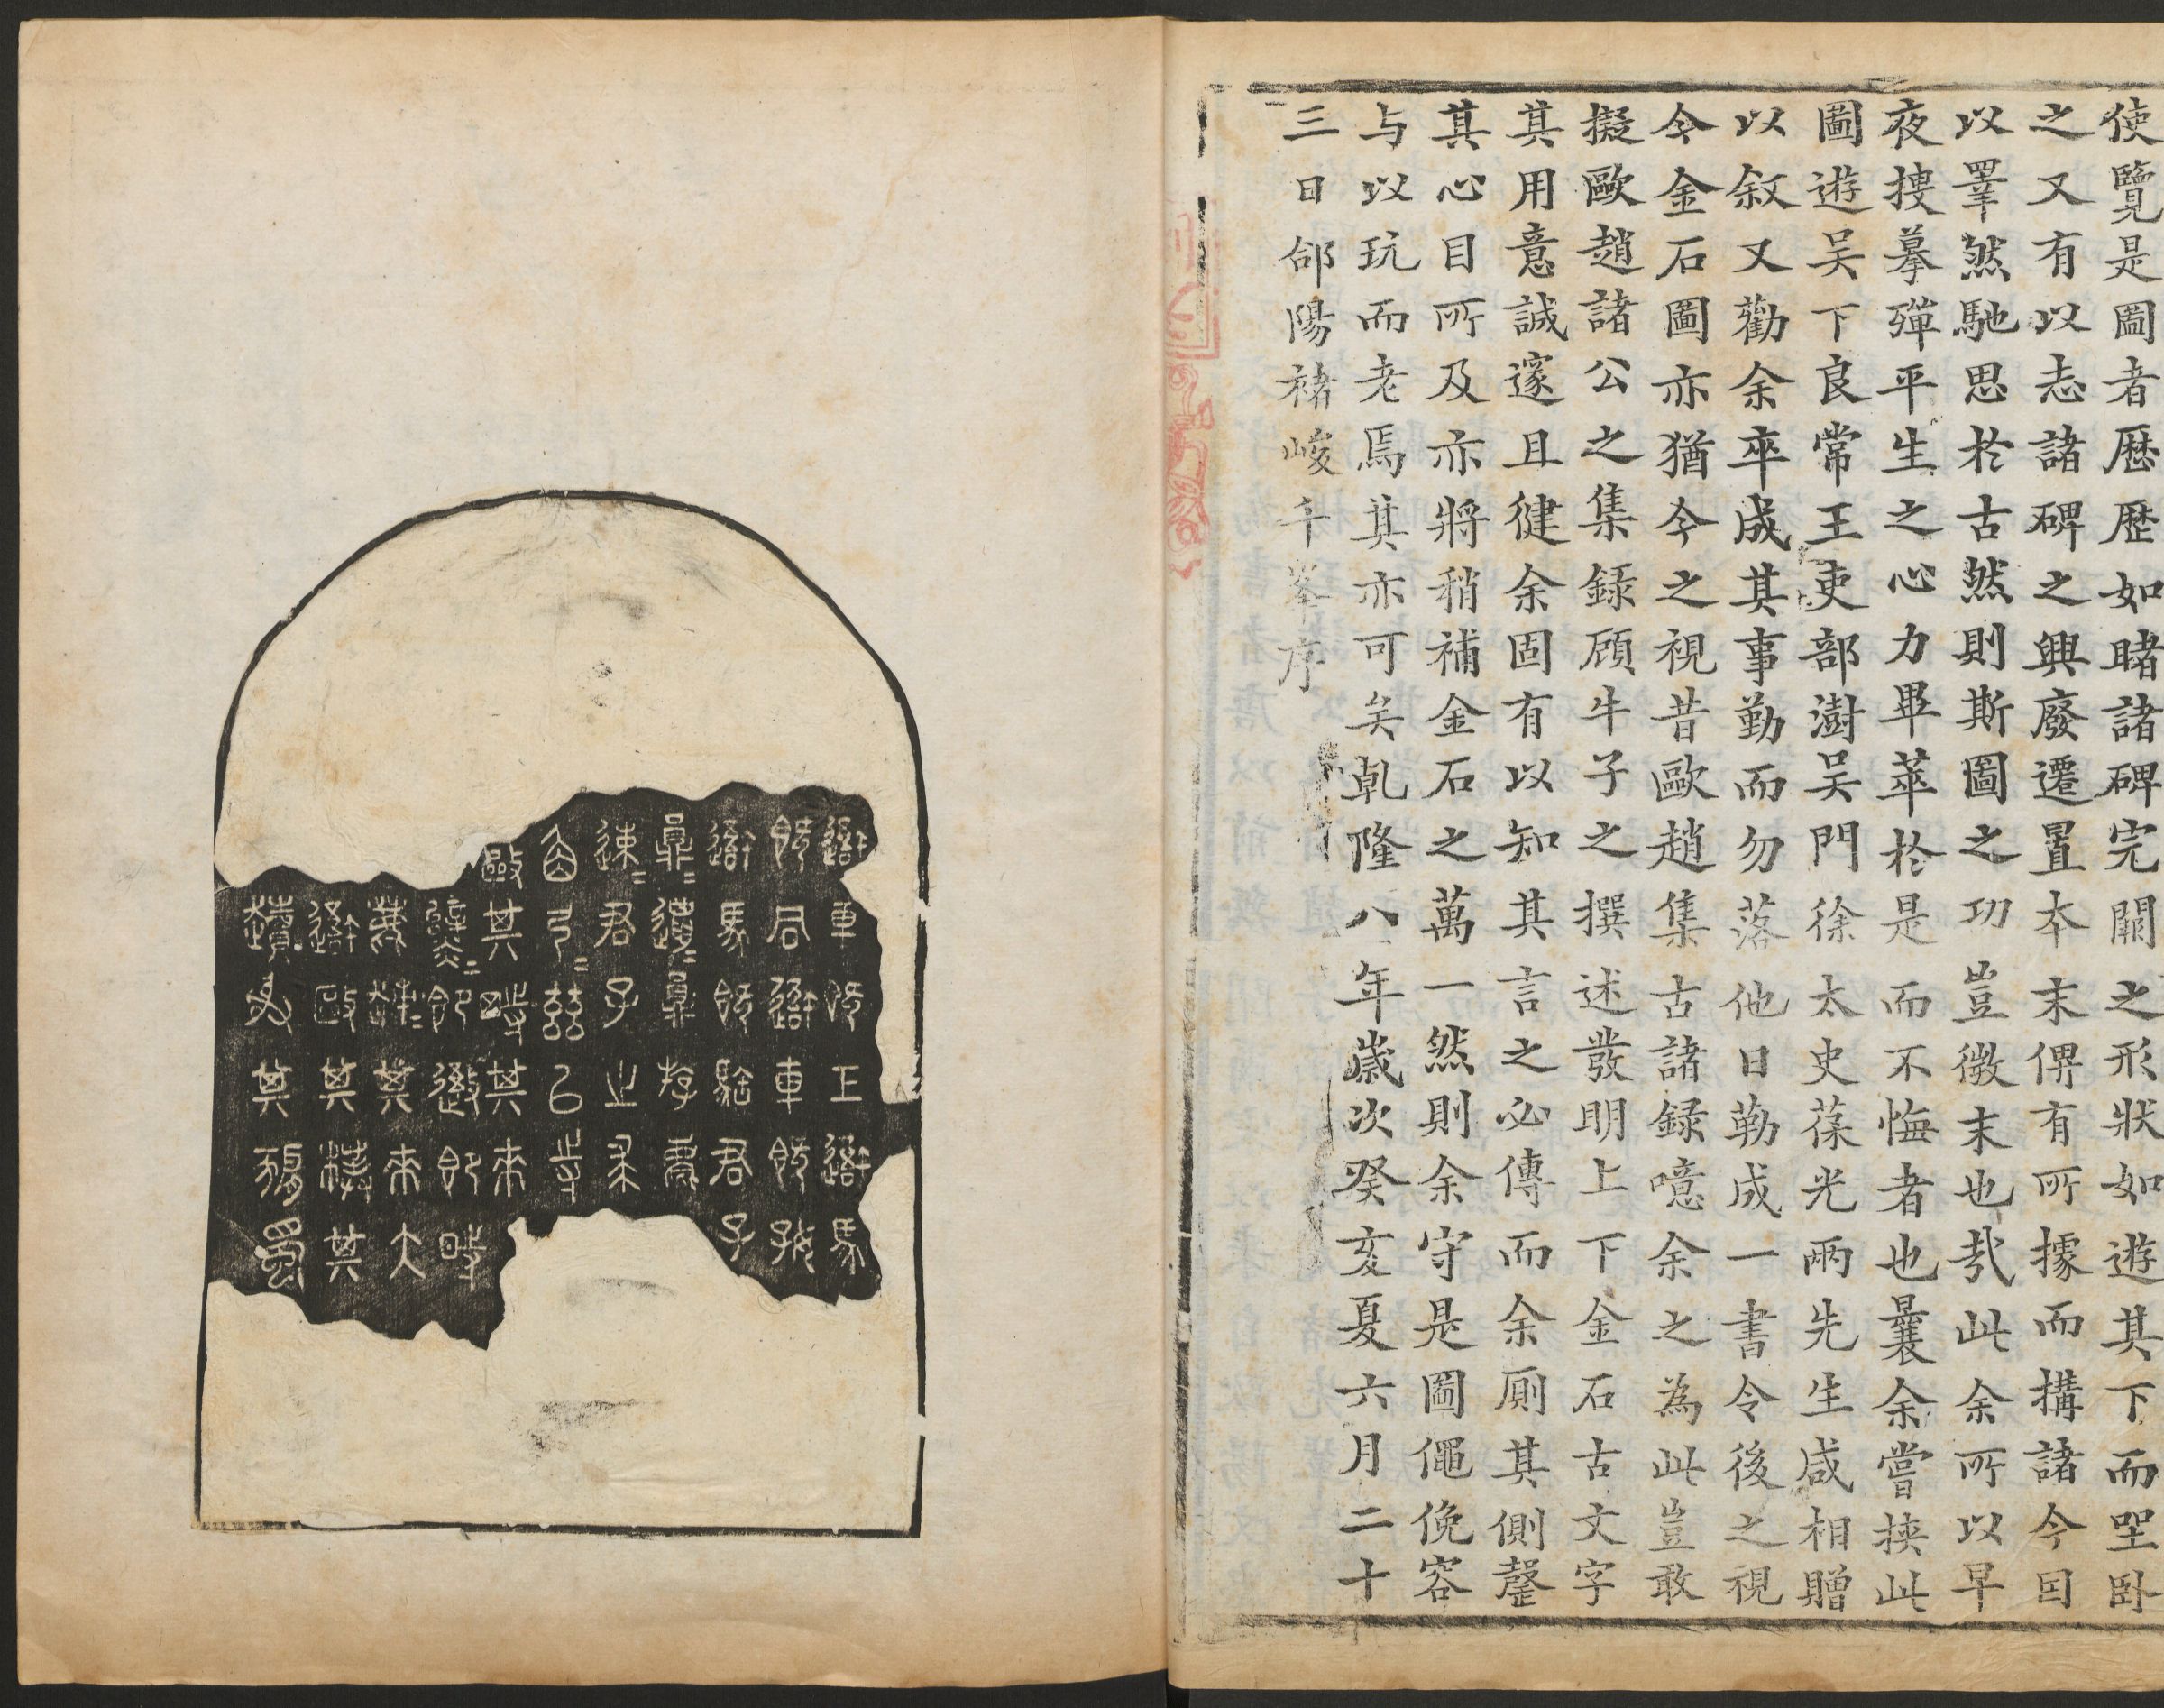 使覽是圖者歷歷如睹諸碑完闕之形狀如遊其下而坐卧
之又有以志諸碑之興廢遷置本末俾有所據而搆諸今因
以睪然馳思於古然則斯圖之功豈微末也哉此余所以早
夜摟摹殫平生之心力畢萃於是而不悔者也曩余嘗挾此
圖遊吴下良常王吏部澍吴門徐太史葆光兩先生咸相贈
以叙又勸余卒成其事勤而勿落他日勒成一書令後之視
今金石圖亦猶今之視昔歐趙集古諸録噫余之為此豈敢
擬歐趙諸公之集録顧牛子之撰述發明上下金石古文字
其用意誠邃且健余固有以知其言之必傳而余厠其側罄
其心目所及亦將稍補金石之萬一然則余守是圖僶俛容
与以玩而老焉其亦可矣乹隆八年歲次癸亥夏六月二十
三日郃陽褚峻千峯序
車既工馬
既同車既好
馬既君子
君子之求
弓茲以寺
敺其時其來
即即時
其來大
敺其樸其
其蜀